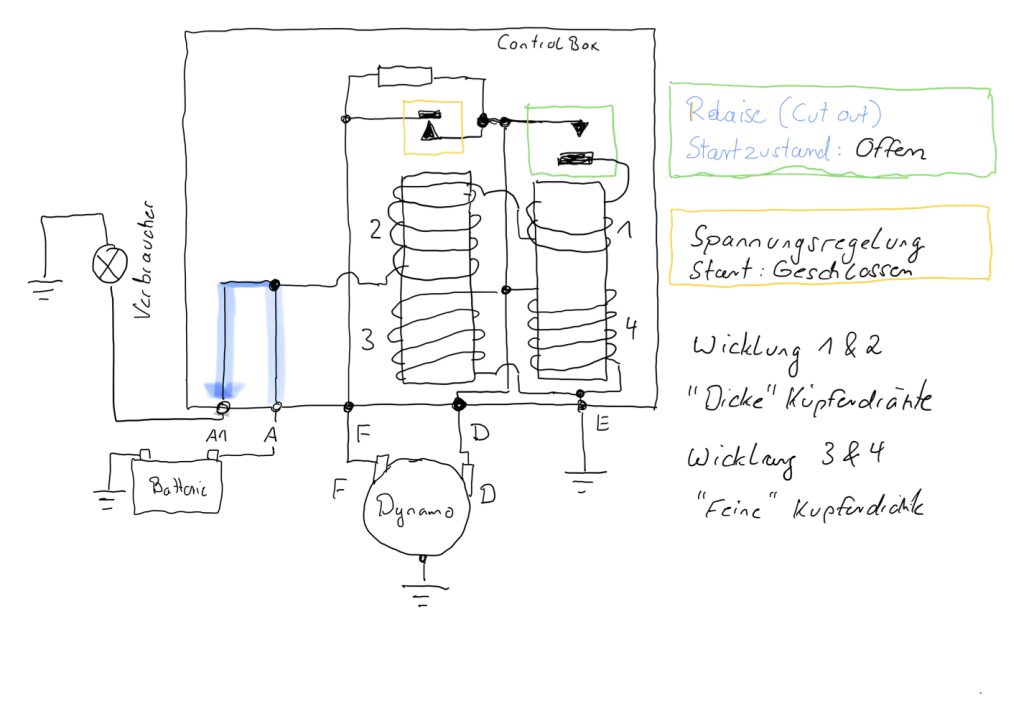 Control Box
Relaise (Cut out)
Startzustand: Offen
Spannungsregelung
Start: Geschlossen
Verbraucher
2
1
3
4
Wicklung 1 & 2
"Dicke" Kupferdrähte
Wicklung 3 & 4
"Feine" Kupferdrähte
A1
A
F
D
E
Batterie
F
D
Dynamo